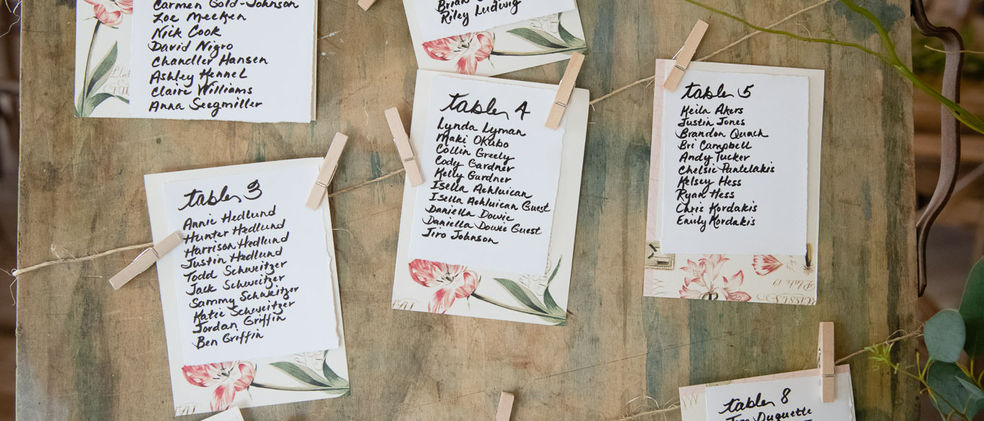 Carmen Gold-Johnson
Zoe Meeken
Nick Cook
David Nigro
Chandler Hansen
Ashley Hennel
Claire Williams
Anna Seegmiller
Riley Ludwig
table 3
Annie Hedlund
Hunter Hedlund
Harrison Hedlund
Justin Hedlund
Todd Schweitzer
Jack Schweitzer
Sammy Schweitzer
Katie Schweitzer
Jordan Griffin
Ben Griffin
table 4
Lynda Lyman
Maki Okubo
Collin Greely
Cody Gardner
Kelly Gardner
Isella Achluican
Isella Achluican Guest
Daniella Dowie
Daniella Dowie Guest
Jiro Johnson
table 5
Keila Akers
Justin Jones
Brandon Quach
Bri Campbell
Andy Tucker
Chelsie Pantelakis
Kelsey Hess
Ryan Hess
Chris Kordakis
Emily Kordakis
table 8
Duquette